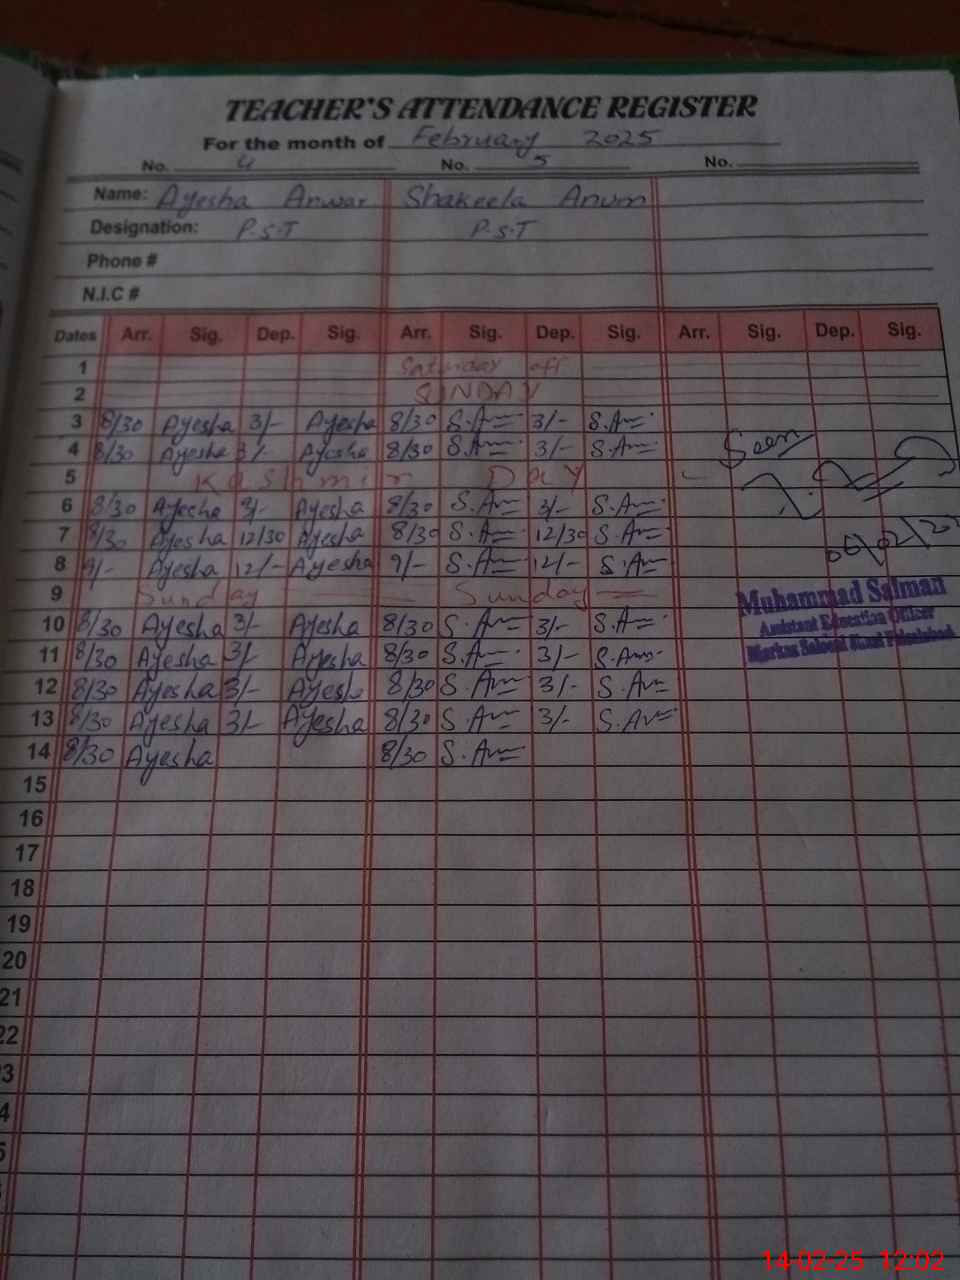 TEACHER'S ATTENDANCE REGISTER
For the month of February 2025
No. 4 No. 5 No.
Name: Ayesha Anwar Shakeela Anum
Designation: P.S.T P.S.T
Phone #
N.I.C #
Dates Arr. Sig. Dep. Sig. Arr. Sig. Dep. Sig. Arr. Sig. Dep. Sig.
1 Saturday off
2 SUNDAY
3 8/30 Ayesha 3/- Ayesha 8/30 S.Am 3/- S.Am
4 8/30 Ayesha 3/- Ayesha 8/30 S.Am 3/- S.Am Seen
5 Kashmir DAY
6 8/30 Ayesha 3/- Ayesha 8/30 S.Am 3/- S.Am
7 8/30 Ayesha 12/30 Ayesha 8/30 S.Am 12/30 S.Am
8 9/- Ayesha 12/- Ayesha 9/- S.Am 12/- S.Am
9 Sunday Sunday
Muhammad Salman
Assistant Education Officer
10 8/30 Ayesha 3/- Ayesha 8/30 S.Am 3/- S.Am
11 8/30 Ayesha 3/- Ayesha 8/30 S.Am 3/- S.Am
12 8/30 Ayesha 3/- Ayesha 8/30 S.Am 3/- S.Am
13 8/30 Ayesha 3/- Ayesha 8/30 S.Am 3/- S.Am
14 8/30 Ayesha 8/30 S.Am
15
16
17
18
19
20
21
22
3
4
5
14-02-25 12:02